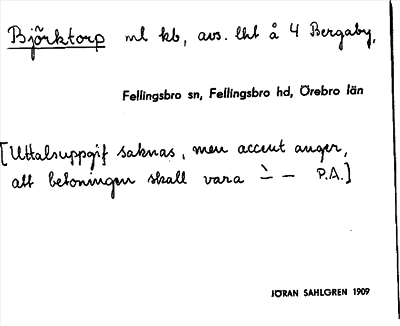 Björktorp ml kb, avs. lht å 4 Bergaby,
Fellingsbro sn, Fellingsbro hd, Örebro län
[Uttalsuppgif saknas, men accent anger,
att betoningen skall vara ∸ – P.A.]
JÖRAN SAHLGREN 1909